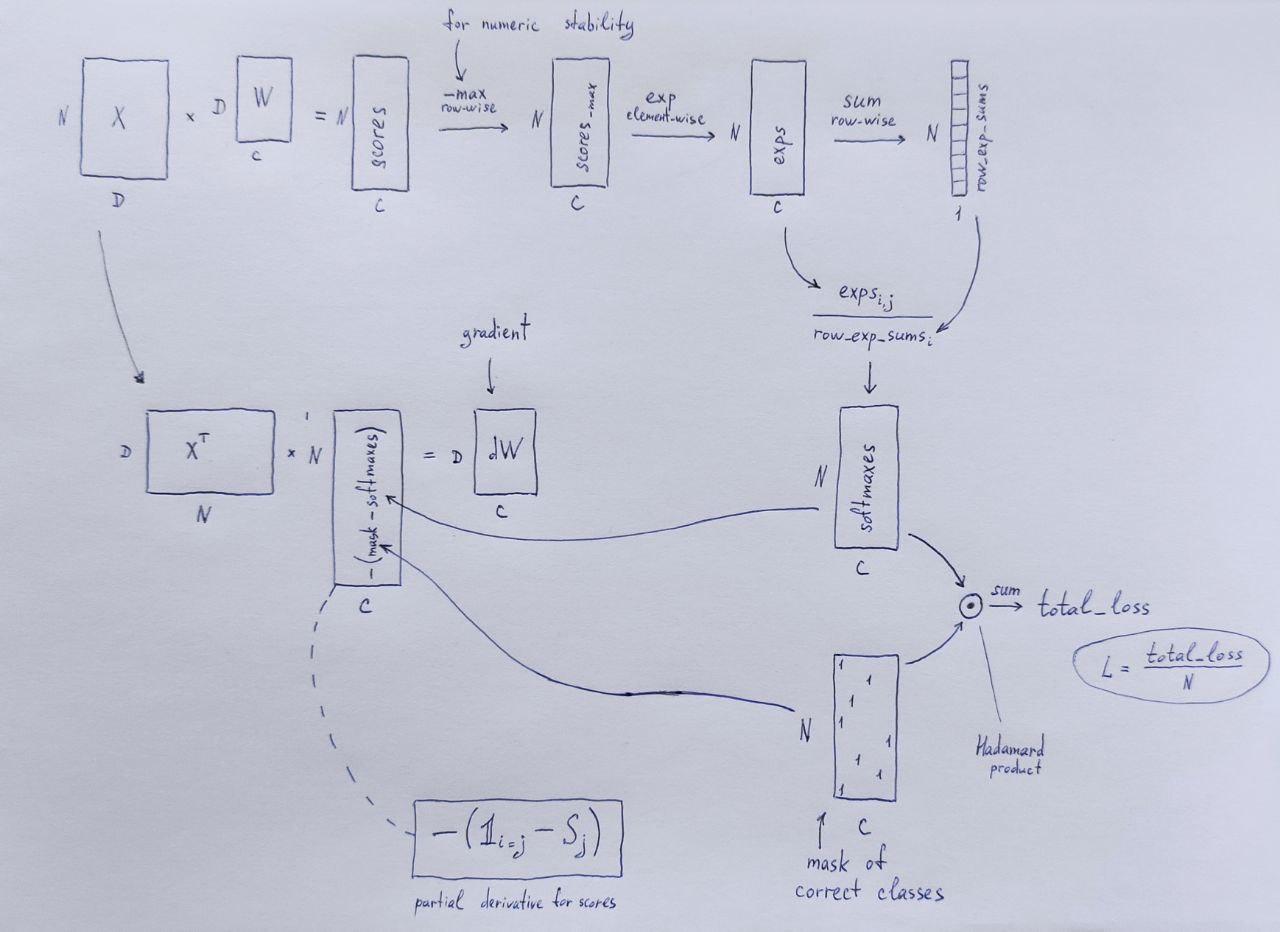 for numeric stability
N X × D W = N scores -max row-wise N scores-max exp element-wise N exps sum row-wise N row_exp_sums
D C C C C 1
exps i,j
row_exp_sums i
gradient
D X^T × N -(mask - softmaxes) = D dW
N C C
N softmaxes
C
sum total_loss
L = total_loss / N
N 1 1 1 1 1 1 1 1
Hadamard
product
C
mask of
correct classes
-(𝟙 i=j - S j)
partial derivative for scores